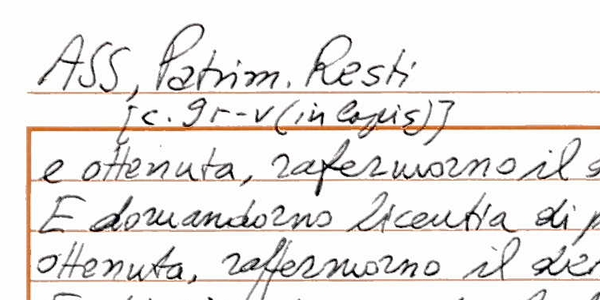 ASS, Patrim. Resti
[c. 9r-v (in lapis)]
e ottenuta, rafermorno il
E domandorno licentia di
ottenuta, raffermorno il